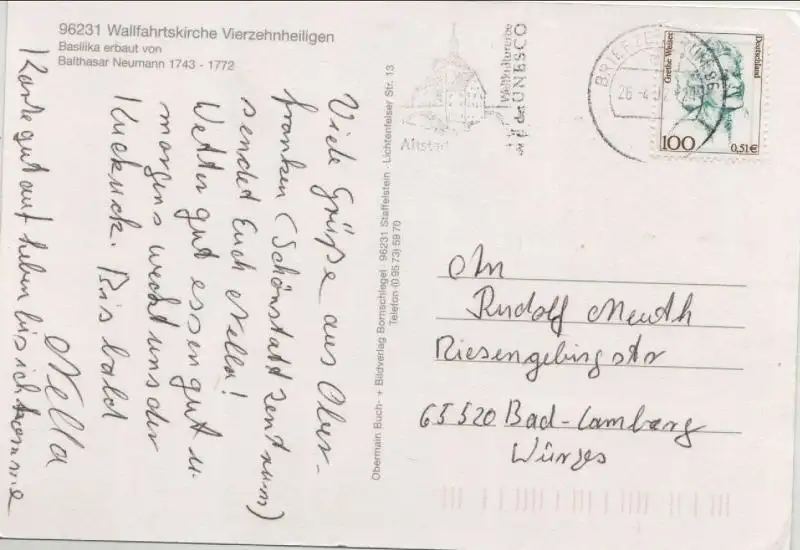 96231 Wallfahrtskirche Vierzehnheiligen
Basilika erbaut von
Balthasar Neumann 1743 - 1772
Viele Grüße aus Ober-
franken (Schönstattzentrum)
sendet Euch Nella!
Wetter gut essen gut u.
morgens weckt uns der
Kuckuck. Bis bald
Nella
Karte gut aufheben bis ich komme
Obermain Buch- + Bildverlag Bornschlegel · 96231 Staffelstein · Lichtenfelser Str. 13
Telefon (0 95 73) 59 70
Altstadt
Weltkulturerbe
der UNESCO
BRIEFZENTRUM 96
26.-4.
Grethe Weiser
Deutschland
100
0,51€
An
Rudolf Meuth
Riesengebirgstr
65520 Bad-Camberg
Würges